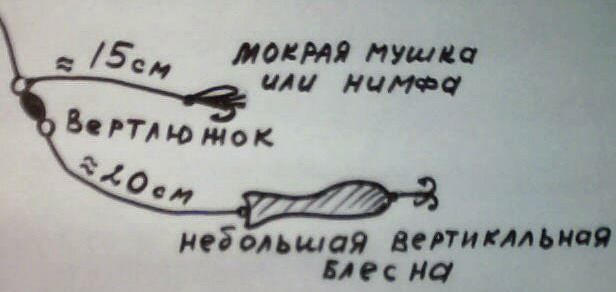 ≈ 15см
мокрая мушка
или нимфа
Вертлюжок
≈20см
небольшая вертикальная
блесна